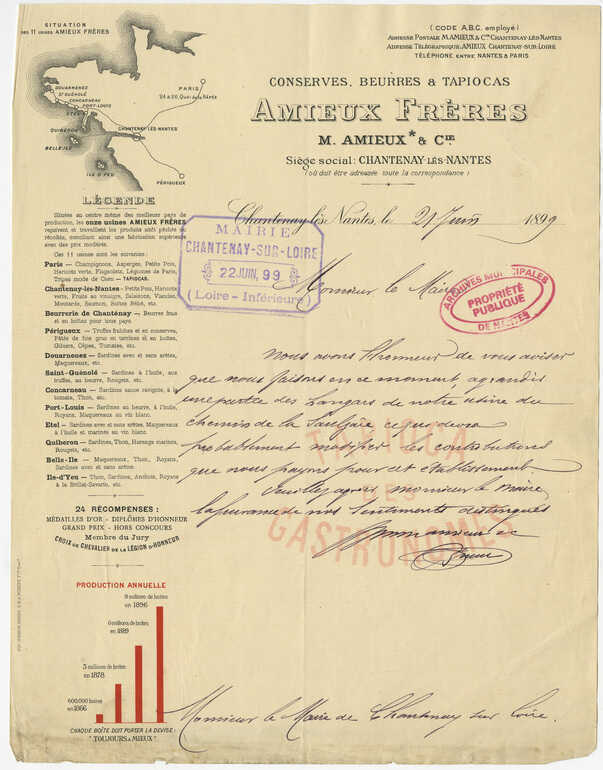 SITUATION
DES 11 USINES AMIEUX FRÈRES
DOUARNENEZ
ST GUÉNOLÉ
CONCARNEAU
PORT-LOUIS
ETEL
QUIBERON
BELLE ILE
CHANTENAY-LES-NANTES
ILE D'YEU
PARIS
PÉRIGUEUX
(CODE A.B.C. employé)
ADRESSE POSTALE M. AMIEUX & Cie CHANTENAY-LÈS-NANTES
ADRESSE TÉLÉGRAPHIQUE: AMIEUX CHANTENAY-SUR-LOIRE
TÉLÉPHONE ENTRE NANTES & PARIS
CONSERVES, BEURRES & TAPIOCAS
AMIEUX FRÈRES
M. AMIEUX* & CIE
Siège social: CHANTENAY-LÈS-NANTES
(où doit être adressée toute la correspondance)
Chantenay-lès-Nantes, le 21 Juin 1899
MAIRIE
CHANTENAY-SUR-LOIRE
22 JUIN. 99
(Loire-Inférieure)
ARCHIVES MUNICIPALES
PROPRIÉTÉ
PUBLIQUE
DE NANTES
Monsieur le Maire
Nous avons l'honneur de vous aviser
que nous faisons en ce moment, agrandir
une partie des hangars de notre usine du
chemin de la Saulzaie ce qui devra
probablement modifier les contributions
que nous payons pour cet établissement.
Veuillez agréer monsieur le maire
l'assurance de nos sentiments distingués
TAPIOCA
DES
GASTRONOMES
Monsieur le Maire de Chantenay sur Loire.
LÉGENDE
Situées au centre même des meilleurs pays de
production, les onze usines AMIEUX FRÈRES
reçoivent et travaillent les produits sitôt pêchés ou
récoltés, conciliant ainsi une fabrication supérieure
avec des prix modérés.
Ces 11 usines sont les suivantes:
Paris — Champignons, Asperges, Petits Pois,
Haricots verts, Flageolets, Légumes de Paris,
Tripes mode de Caen — TAPIOCAS.
Chantenay-les-Nantes - Petits Pois, Haricots
verts, Fruits au vinaigre, Salaisons, Viandes,
Moutarde, Saumon, Suites Bébé, etc.
Beurrerie de Chantenay. — Beurres frais
et en boîtes pour tous pays.
Périgueux — Truffes fraîches et en conserves,
Pâté de foie gras en terrines et en boîtes,
Gibiers, Cèpes, Tomates, etc.
Douarnenez — Sardines avec et sans arêtes,
Maquereaux, etc.
Saint-Guénolé — Sardines à l'huile, aux
truffes, au beurre, Rougets, etc.
Concarneau — Sardines sauce ravigote, à la
tomate, Thon, etc.
Port-Louis — Sardines au beurre, à l'huile,
Royans, Maquereaux au vin blanc.
Etel — Sardines avec et sans arêtes, Maquereaux
à l'huile et marinés au vin blanc.
Quiberon — Sardines, Thon, Harengs marinés,
Rougets, etc.
Belle-Ile — Maquereaux, Thon, Royans,
Sardines avec et sans arêtes.
Ile-d'Yeu — Thon, Sardines, Anchois, Royans
à la Brillat-Savarin, etc.
24 RÉCOMPENSES:
MÉDAILLES D'OR - DIPLÔMES D'HONNEUR
GRAND PRIX - HORS CONCOURS
Membre du Jury
CROIX DE CHEVALIER DE LA LÉGION D'HONNEUR
PRODUCTION ANNUELLE
9 millions de boîtes
en 1896
6 millions de boîtes
en 1889
3 millions de boîtes
en 1878
600.000 boîtes
en 1866
CHAQUE BOÎTE DOIT PORTER LA DEVISE:
"TOUJOURS À MIEUX"